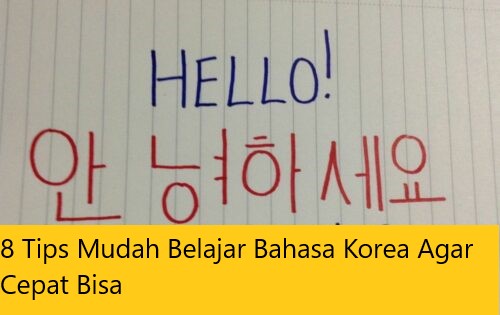 HELLO!
안녕하세요
8 Tips Mudah Belajar Bahasa Korea Agar
Cepat Bisa